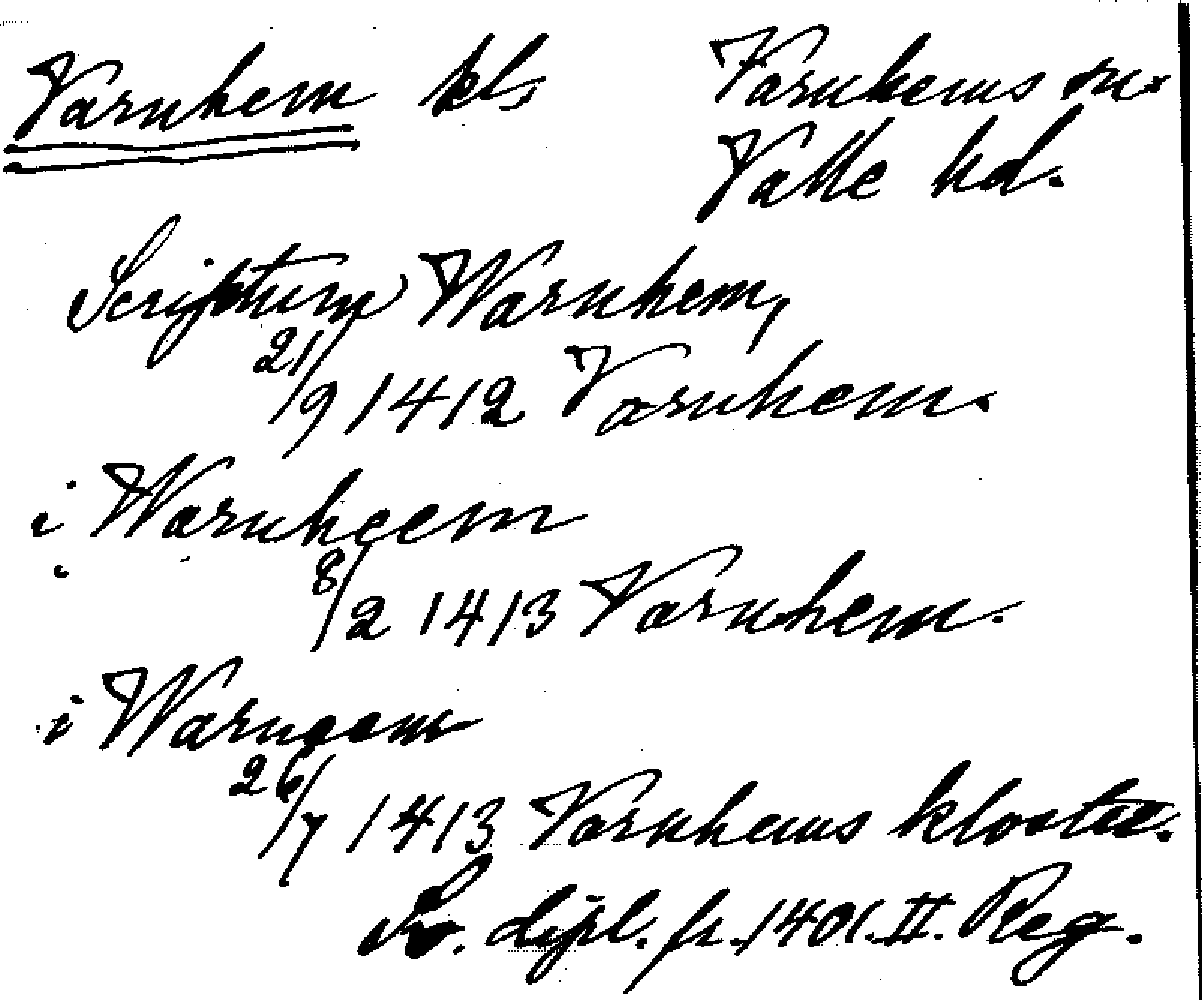 Varnhem kl. Varnhems sn.
Valle hd.
Scriptum Warnhem,
21/9 1412 Varnhem.
i Warnheem
8/2 1413 Varnhem.
i Warnæem
26/7 1413 Varnhems kloster.
Sv. dipl. fr. 1401. II. Reg.